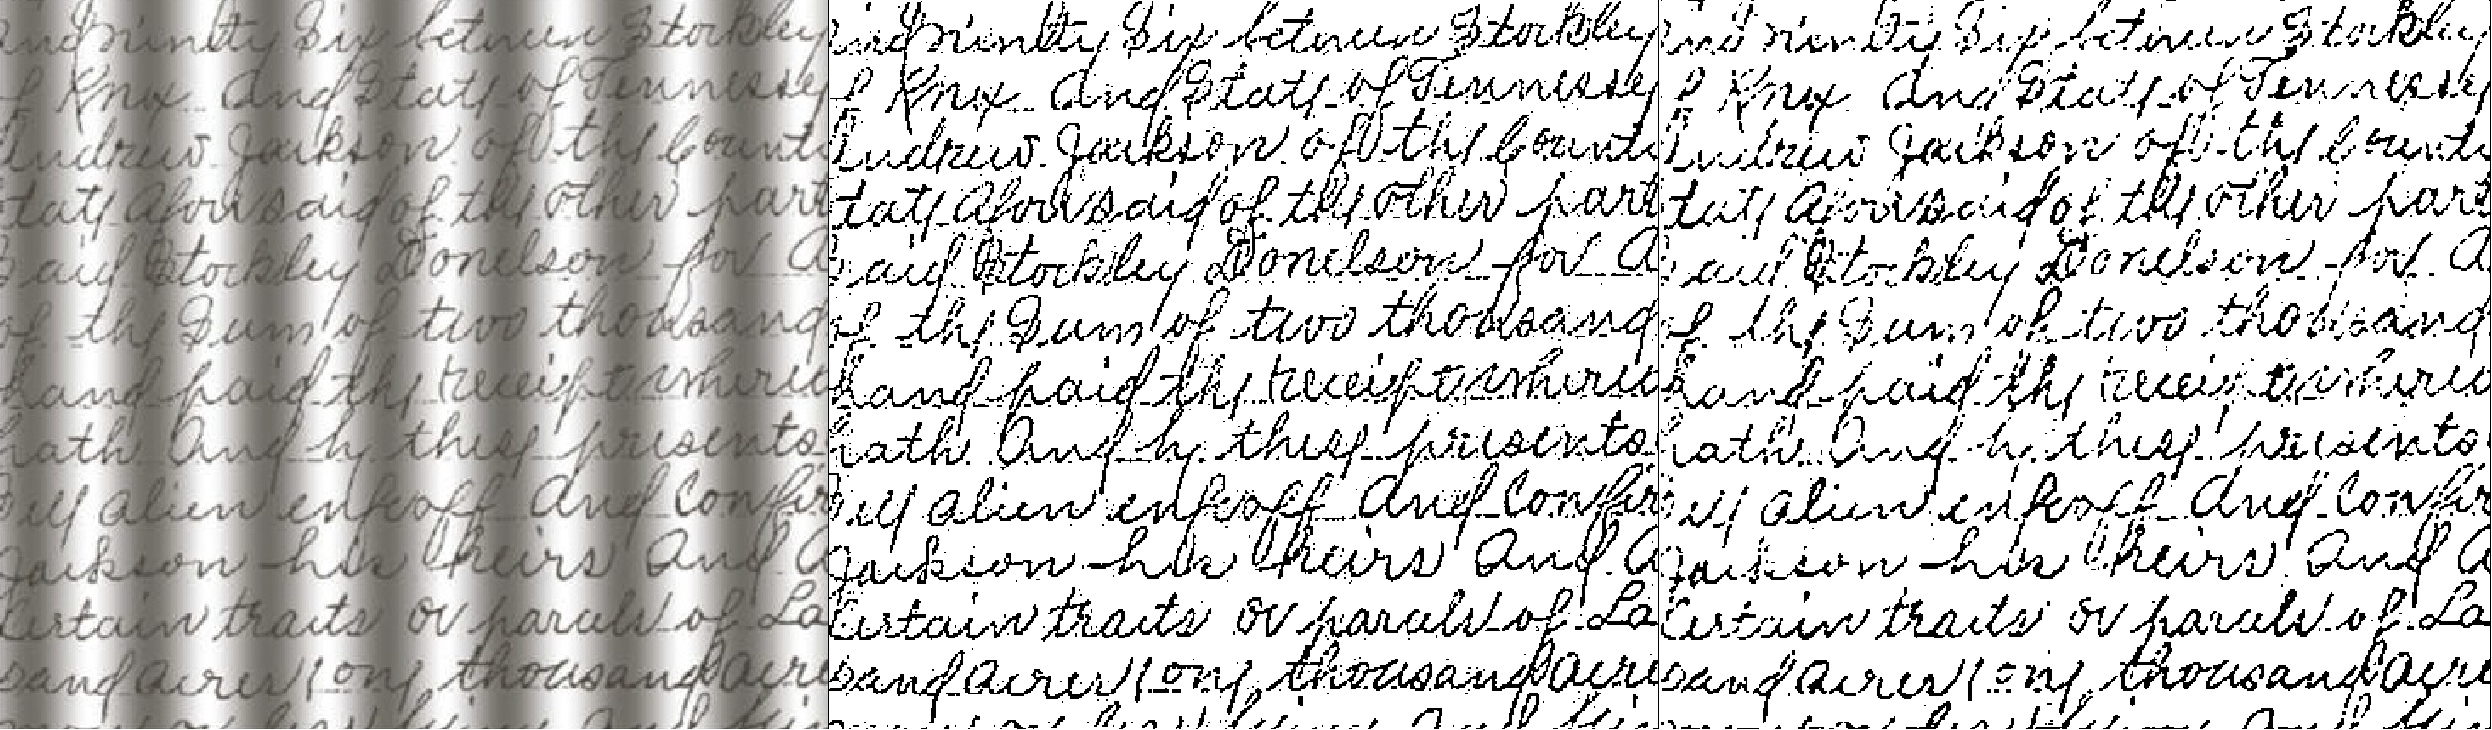 and Ninety Six between Stockley
of Knox and State of Tennessey
Andrew Jackson of the County
tate aforesaid of the other part
said Stockley Donelson for a
of the Sum of two thousand
hand paid the receipt where
hath and by these presents
sell alien enfeoff and confir
Jackson his heirs and a
certain tracts or parcels of La
sand acres (one thousand acre
and Ninety Six between Stockley
of Knox and State of Tennessey
Andrew Jackson of the County
tate aforesaid of the other part
said Stockley Donelson for a
of the Sum of two thousand
hand paid the receipt where
hath and by these presents
sell alien enfeoff and confir
Jackson his heirs and a
certain tracts or parcels of La
sand acres (one thousand acre
and Ninety Six between Stockley
of Knox and State of Tennessey
Andrew Jackson of the County
tate aforesaid of the other part
said Stockley Donelson for a
of the Sum of two thousand
hand paid the receipt where
hath and by these presents
sell alien enfeoff and confir
Jackson his heirs and a
certain tracts or parcels of La
sand acres (one thousand acre